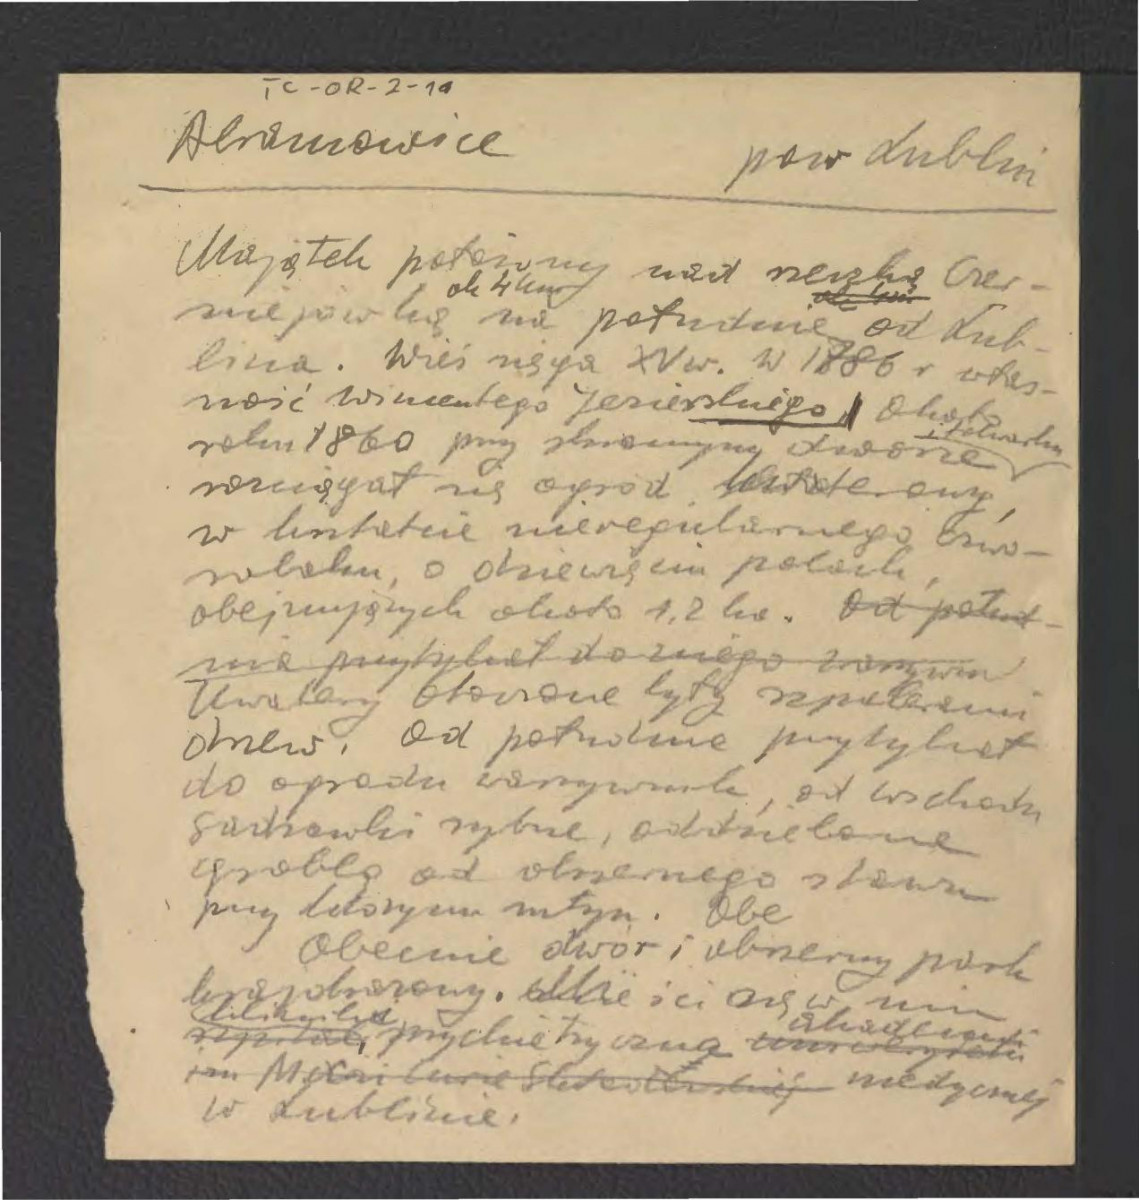 TC-OR-2-10
Abramowice
pow Lublin
Majątek położony nad rzeczką Czer-
niejówką ok 4 km na południe od Lub-
lina. Wieś sięga XV w. W 1786 r włas-
ność Wincentego Jezierskiego. Około
roku 1860 przy skromnym dworze i folwarku
rozciągał się ogród kwaterowy,
w kształcie nieregularnego czwo-
roboku, o dziewięciu polach,
obejmujących około 1,2 ha. Od połud-
nia przytykał do niego warzywn
Kwatery otoczone były szpalerami
drzew. Od południa przytykał
do ogrodu warzywnik, od wschodu
sadzawki rybne, oddzielone
groblą od obszernego stawu
przy którym młyn. Obe
Obecnie dwór i obszerny park
krajobrazowy. Mieści się w nim
szpital klinika psychiatryczna uniwersytetu akademii
im Marii Curie Skłodowskiej medycznej
w Lublinie.